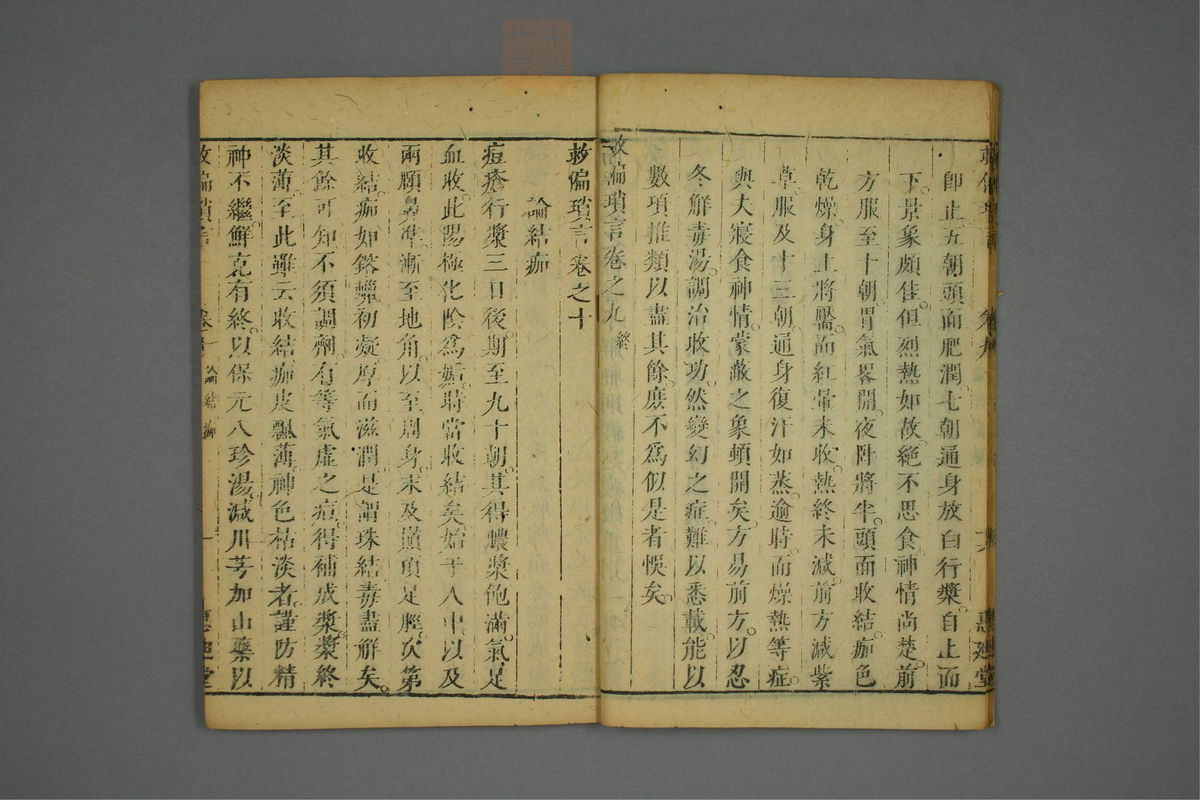 救偏瑣言 卷九 十六 惠迪堂
即止五朝頭面肥潤七朝通身放白行漿自止而
下景象頗佳但烈熱如故絕不思食神情尚楚前
方服至十朝胃氣畧開夜卧將半頭面收結痂色
乾燥身上將靨而紅暈未收熱終未減前方減紫
草服及十三朝通身復汗如蒸逾時而燥熱等症
與夫寢食神情蒙蔽之象頓開矣方易前方以忍
冬解毒湯調治收功然變幻之症難以悉載能以
數項推類以盡其餘庶不爲似是者悞矣
救偏瑣言卷之九終
救偏瑣言卷之十
論結痂
痘瘡行漿三日後期至九十朝其得膿漿飽滿氣足
血收此陽極化陰爲姤時當收結矣始于人中以及
兩頤鼻準漸至地角以至周身末及巔頂足脛次第
收結痂如鎔蠟初凝厚而滋潤是謂珠結毒盡解矣
其餘可知不須調劑有等氣虛之痘得補成漿漿終
淡薄至此雖云收結痂皮飄薄神色枯淡者謹防精
神不繼鮮克有終以保元八珍湯減川芎加山藥以
救偏瑣言 卷十 論結痂 一 惠迪堂